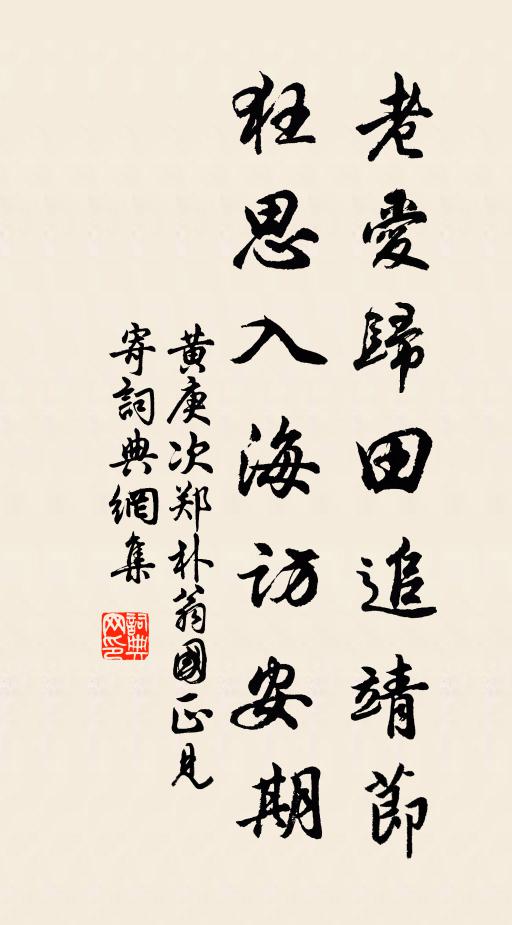 老愛歸田追靖節
狂思入海訪安期
黃庚次郑朴翁國正見
寄詞典網集
詞典网印